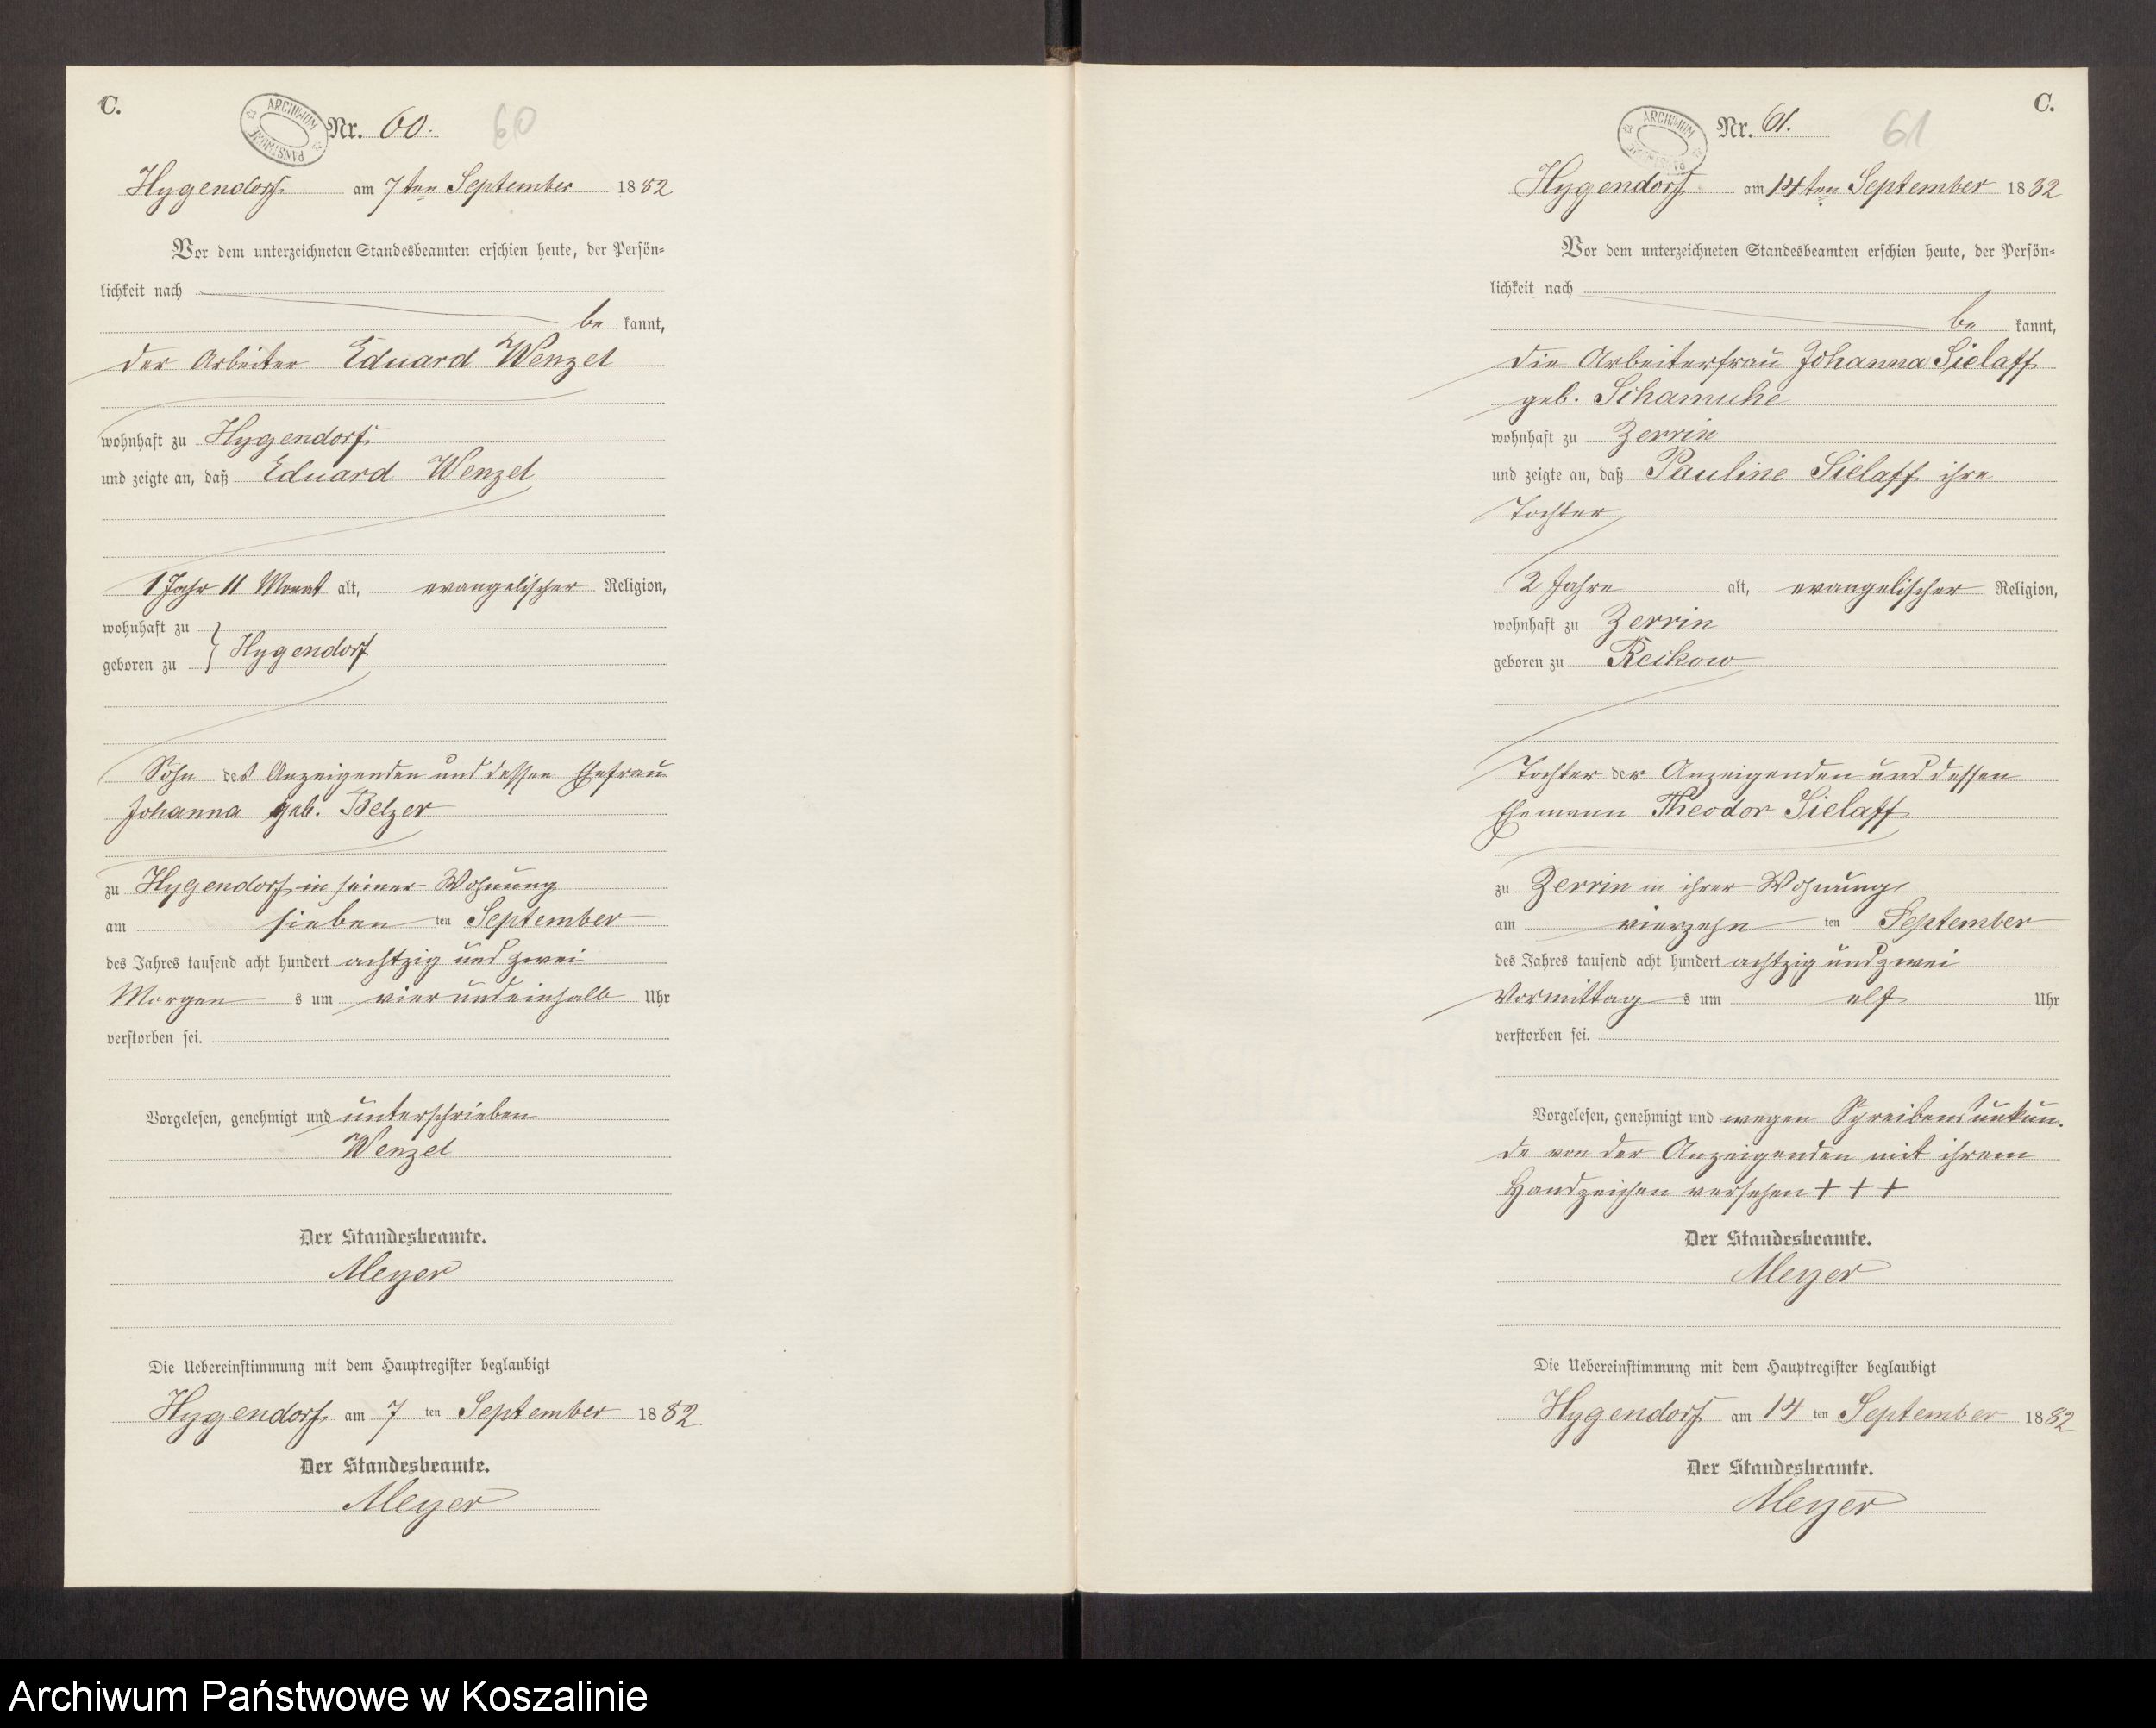 C.
Nr. 60. 60
ARCHIWUM PAŃSTWOWE
Hygendorf am 7ten September 1882
Vor dem unterzeichneten Standesbeamten erschien heute, der Persön=
lichkeit nach
be kannt,
der Arbeiter Eduard Wenzel
wohnhaft zu Hygendorf
und zeigte an, daß Eduard Wenzel
1 Jahr 11 Monat alt, evangelischer Religion,
wohnhaft zu
geboren zu } Hygendorf
Sohn des Anzeigenden und dessen Ehefrau
Johanna geb. Belzer
zu Hygendorf in seiner Wohnung
am sieben ten September
des Jahres tausend acht hundert achtzig und zwei
Morgen s um vier undeinhalb Uhr
verstorben sei.
Vorgelesen, genehmigt und unterschrieben
Wenzel
Der Standesbeamte.
Meyer
Die Uebereinstimmung mit dem Hauptregister beglaubigt
Hygendorf am 7 ten September 1882
Der Standesbeamte.
Meyer
C.
Nr. 61. 61
ARCHIWUM
Hygendorf am 14ten September 1882
Vor dem unterzeichneten Standesbeamten erschien heute, der Persön=
lichkeit nach
be kannt,
die Arbeiterfrau Johanna Sielaff
geb. Schamuhe
wohnhaft zu Zerrin
und zeigte an, daß Pauline Sielaff ihre
Tochter
2 Jahre alt, evangelischer Religion,
wohnhaft zu Zerrin
geboren zu Reckow
Tochter der Anzeigenden und dessen
Ehemann Theodor Sielaff
zu Zerrin in ihrer Wohnung
am vierzehn ten September
des Jahres tausend acht hundert achtzig und zwei
Vormittag s um elf Uhr
verstorben sei.
Vorgelesen, genehmigt und wegen Schreibensunkun.
de von der Anzeigenden mit ihrem
Handzeichen versehen + + +
Der Standesbeamte.
Meyer
Die Uebereinstimmung mit dem Hauptregister beglaubigt
Hygendorf am 14 ten September 1882
Der Standesbeamte.
Meyer
Archiwum Państwowe w Koszalinie